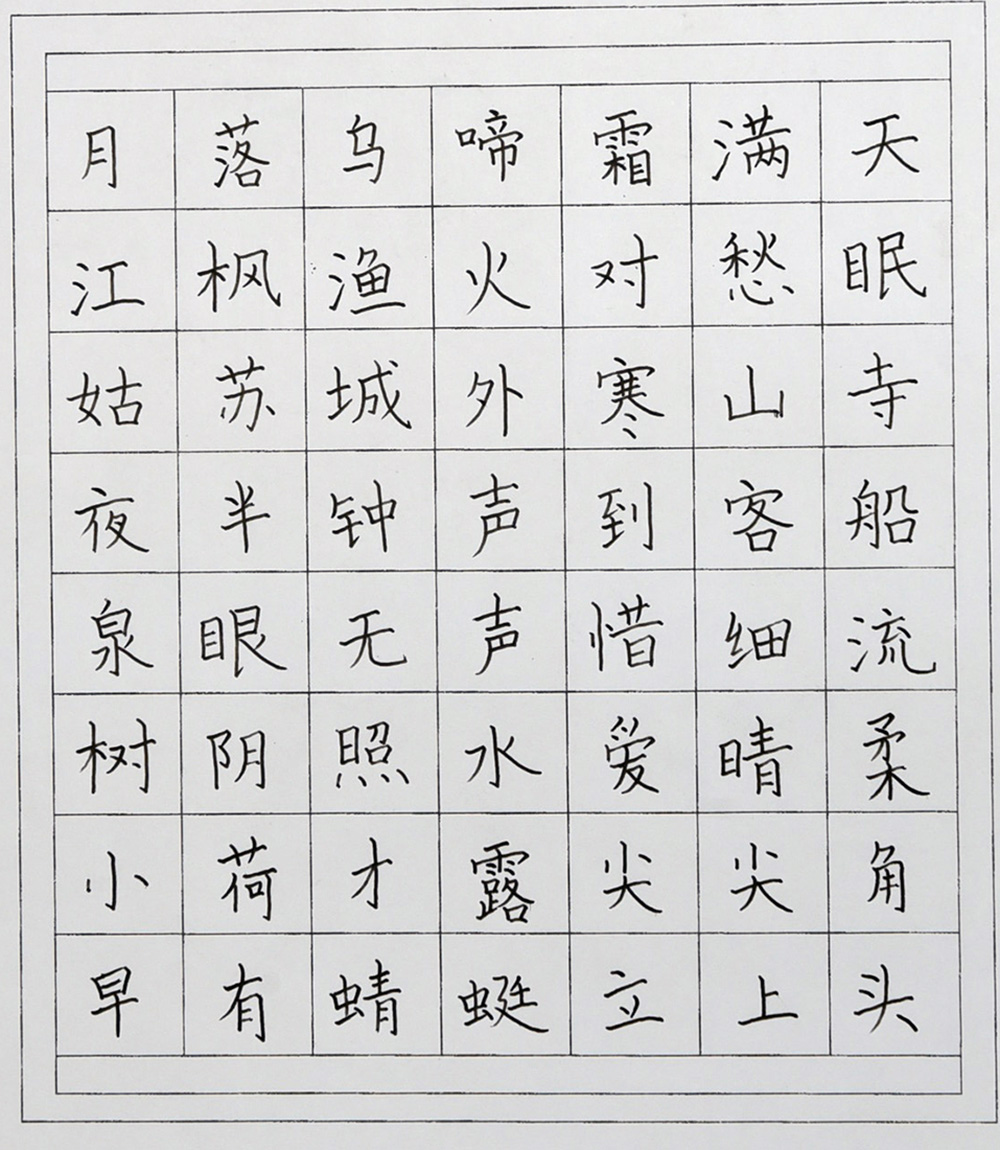 月落乌啼霜满天
江枫渔火对愁眠
姑苏城外寒山寺
夜半钟声到客船
泉眼无声惜细流
树阴照水爱晴柔
小荷才露尖尖角
早有蜻蜓立上头